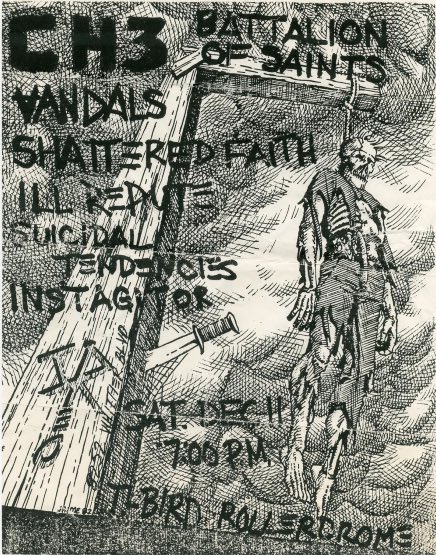 CH3
BATTALION
OF SAINTS
VANDALS
SHATTERED FAITH
ILL REPUTE
SUICIDAL
TENDENCIES
INSTAGITOR
SAT. DEC 11
7:00 P.M.
T-BIRD ROLLERDROME